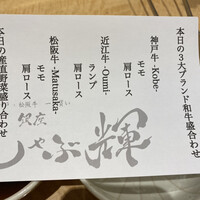 本日の3大ブランド和牛盛り合わせ
神戸牛 -Kobe-
モモ
肩ロース
近江牛 -Oumi-
ランプ
肩ロース
松阪牛 -Matusaka-
モモ
肩ロース
本日の産直野菜盛り合わせ
しゃぶ輝
銀座